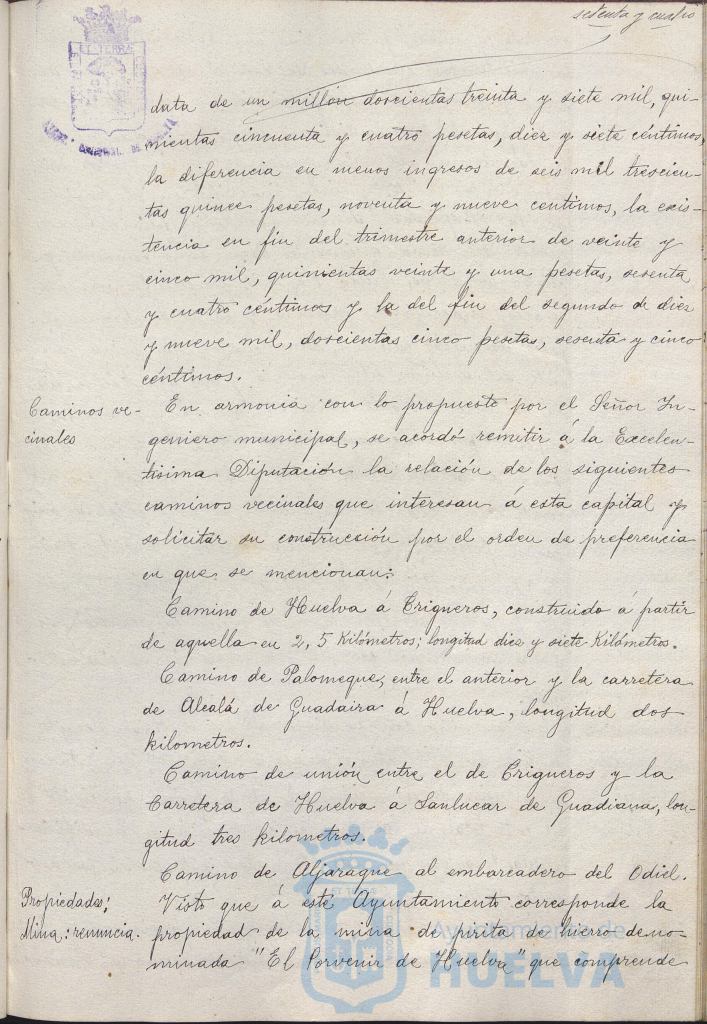 setenta y cuatro
ET TERRÆ
data de un millón doscientas treinta y siete mil, qui-
nientas cincuenta y cuatro pesetas, diez y siete céntimos,
la diferencia en menos ingresos de seis mil trescien-
tas quince pesetas, noventa y nueve centimos, la exis-
tencia en fin del trimestre anterior de veinte y
cinco mil, quinientas veinte y una pesetas, sesenta
y cuatro céntimos y la del fin del segundo de diez
y nueve mil, doscientas cinco pesetas, sesenta y cinco
céntimos.
Caminos ve-
cinales
En armonia con lo propuesto por el Señor In-
geniero municipal, se acordó remitir á la Excelen-
tisima Diputación la relación de los siguientes
caminos vecinales que interesan á esta capital y
solicitar su construcción por el orden de preferencia
en que se mencionan:
Camino de Huelva á Trigueros, construido á partir
de aquella en 2,5 Kilómetros; longitud diez y siete Kilómetros.
Camino de Palomeque, entre el anterior y la carretera
de Alcalá de Guadaira á Huelva, longitud dos
kilometros.
Camino de unión entre el de Trigueros y la
Carretera de Huelva á Sanlucar de Guadiana, lon-
gitud tres kilometros.
Camino de Aljaraque al embarcadero del Odiel.
Propiedades;
Mina: renuncia.
Visto que á este Ayuntamiento corresponde la
propiedad de la mina de pirita de hierro deno-
minada "El Porvenir de Huelva" que comprende
Ayuntamiento de
HUELVA